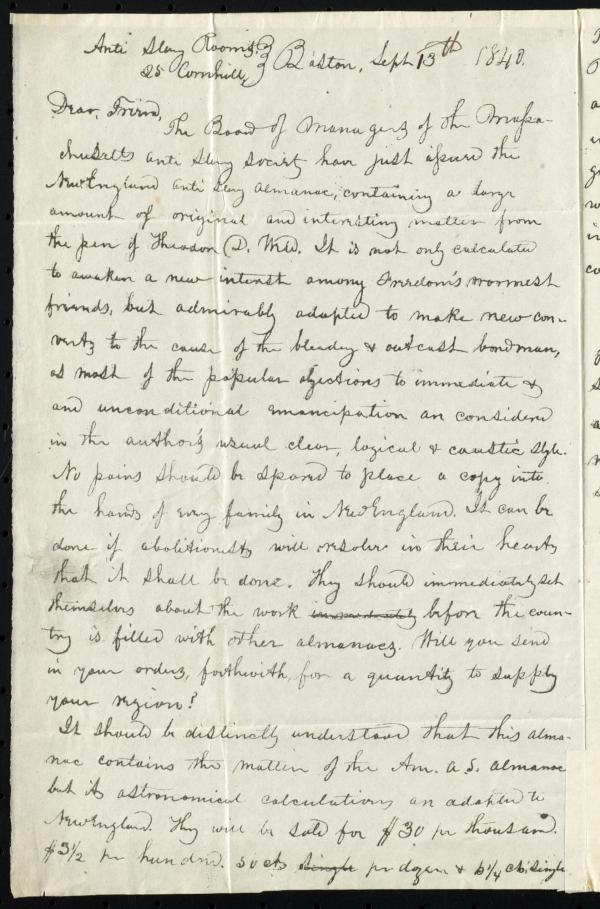 Anti Slavy Rooms
25 Cornhill, Boston, Sept 13th 1840.
Dear, Friend,
The Board of Managers of the Massa-
chusetts Anti Slavy Society have just issued the
New England Anti Slavy Almanac, containing a large
amount of original and interesting matter from
the pen of Theodore D. Weld. It is not only calculated
to awaken a new interest among Freedom's warmest
friends, but admirably adapted to make new con-
verts to the cause of the bleeding & outcast bondman,
as most of the popular objections to immediate &
and unconditional emancipation are considered
in the author's usual clear, logical & caustic style.
No pains should be spared to place a copy into
the hands of every family in New England. It can be
done if abolitionists will resolve in their hearts
that it shall be done. They should immediately set
themselves about the work immediately before the coun-
try is filled with other almanacs. Will you send
in your orders, forthwith, for a quantity to supply
your region?
It should be distinctly understood that this alma-
nac contains the matter of the Am. A. S. Almanac
but its astronomical calculations are adapted to
New England. They will be sold for $30 per thousand.
$3 1/2 per hundred. 50 cts single per dozen & 6 1/4 cts. single